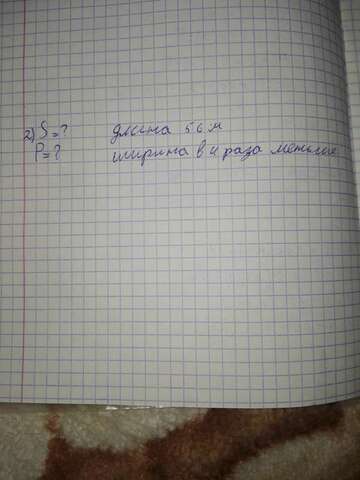 2) S=? длина 56 м
P=? ширина в 4 раза меньше